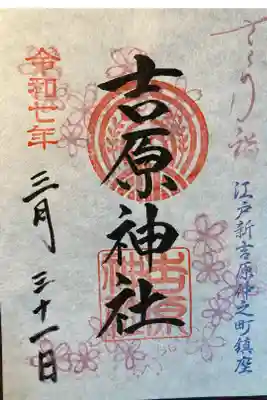 江戸新吉原仲之町鎮座
吉原神社
令和七年
三月三十一日